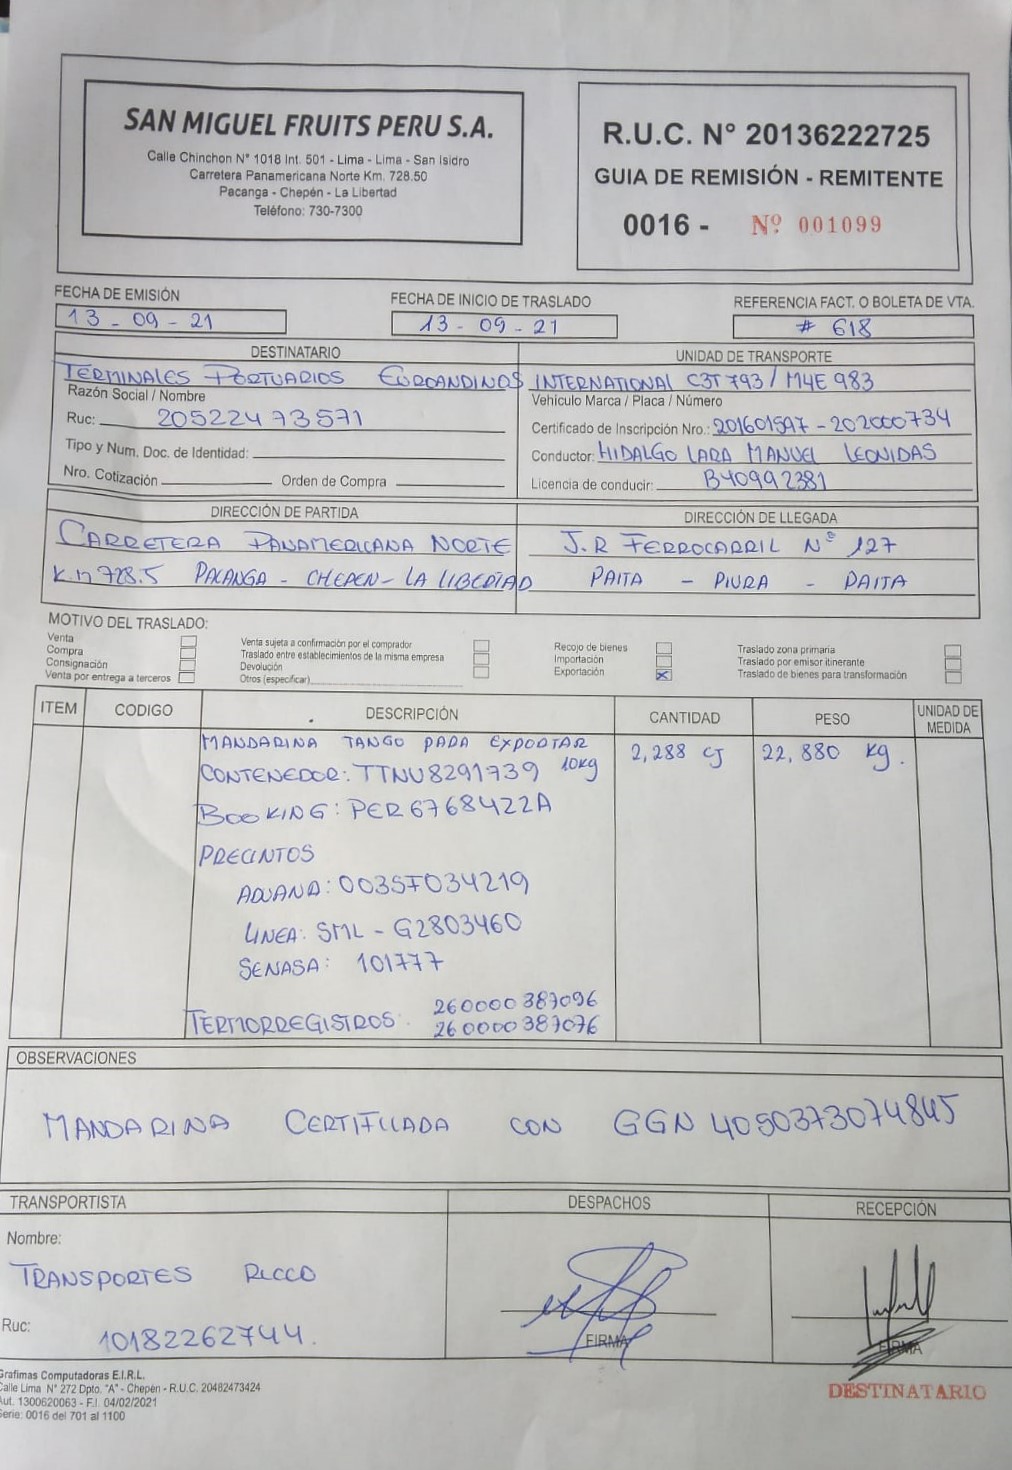 SAN MIGUEL FRUITS PERU S.A.
Calle Chinchon N° 1018 Int. 501 - Lima - Lima - San Isidro
Carretera Panamericana Norte Km. 728.50
Pacanga - Chepén - La Libertad
Teléfono: 730-7300
R.U.C. N° 20136222725
GUIA DE REMISIÓN - REMITENTE
0016 - Nº 001099
FECHA DE EMISIÓN
13 - 09 - 21
FECHA DE INICIO DE TRASLADO
13 - 09 - 21
REFERENCIA FACT. O BOLETA DE VTA.
# 618
DESTINATARIO
TERMINALES PORTUARIOS EUROANDINOS
Razón Social / Nombre
Ruc: 20522473571
Tipo y Num. Doc. de Identidad:
Nro. Cotización Orden de Compra
UNIDAD DE TRANSPORTE
INTERNATIONAL C3T793 / M4E 983
Vehículo Marca / Placa / Número
Certificado de Inscripción Nro.: 201601597 - 202000734
Conductor: HIDALGO LARA MANUEL LEONIDAS
Licencia de conducir: B40992381
DIRECCIÓN DE PARTIDA
CARRETERA PANAMERICANA NORTE
K.m 728.5 PACANGA - CHEPEN - LA LIBERTAD
DIRECCIÓN DE LLEGADA
J.R FERROCARRIL N° 127
PAITA - PIURA - PAITA
MOTIVO DEL TRASLADO:
Venta
Compra
Consignación
Venta por entrega a terceros
Venta sujeta a confirmación por el comprador
Traslado entre establecimientos de la misma empresa
Devolución
Otros (especificar)
Recojo de bienes
Importación
Exportación X
Traslado zona primaria
Traslado por emisor itinerante
Traslado de bienes para transformación
ITEM CODIGO DESCRIPCIÓN CANTIDAD PESO UNIDAD DE MEDIDA
MANDARINA TANGO PARA EXPORTAR 2,288 CJ 22,880 Kg.
CONTENEDOR: TTNU8291739 10kg
BOOKING: PER6768422A
PRECINTOS
ADUANA: 0035F034219
LINEA: SML - G2803460
SENASA: 101777
260000387096
TERMORREGISTROS: 260000387076
OBSERVACIONES
MANDARINA CERTIFICADA CON GGN 4050373074845
TRANSPORTISTA
Nombre:
TRANSPORTES RICCO
Ruc: 10182262744.
DESPACHOS
FIRMA
RECEPCIÓN
FIRMA
DESTINATARIO
Grafimas Computadoras E.I.R.L.
Calle Lima N° 272 Dpto. "A" - Chepén - R.U.C. 20482473424
Aut. 1300620063 - F.I. 04/02/2021
Serie: 0016 del 701 al 1100